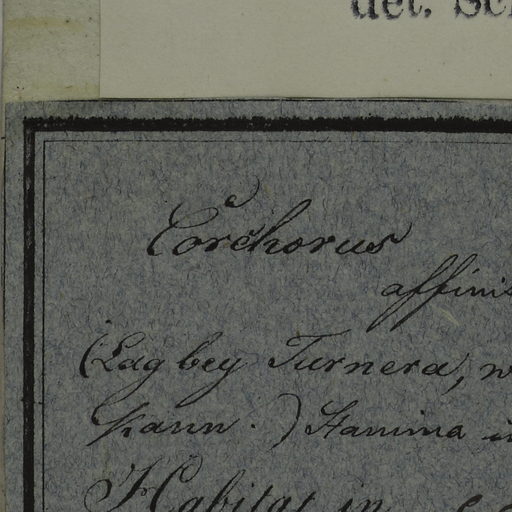 det. Sc
Corchorus
affinis
(Lag bey Turnera, w
kann.) Stamina in
Habitat in